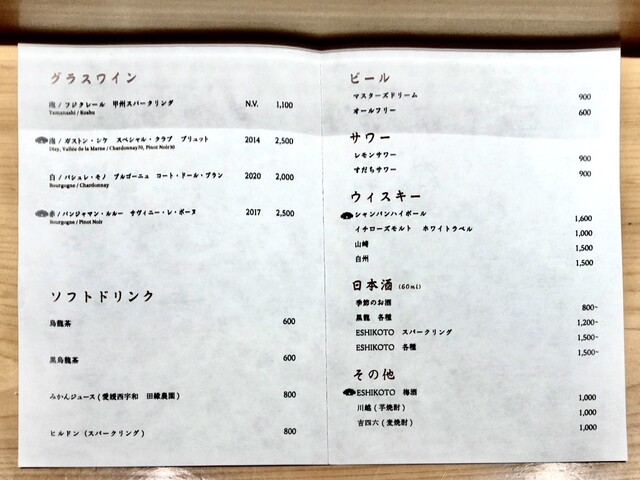 グラスワイン
泡 / フジクレール 甲州スパークリング N.V. 1,100
Yamanashi / Koshu
泡 / ガストン・シケ スペシャル・クラブ ブリュット 2014 2,500
Dizy, Vallée de la Marne / Chardonnay70, Pinot Noir30
白 / バシュレ・モノ ブルゴーニュ コート・ドール・ブラン 2020 2,000
Bourgogne / Chardonnay
赤 / バンジャマン・ルルー サヴィニー・レ・ボーヌ 2017 2,500
Bourgogne / Pinot Noir
ソフトドリンク
烏龍茶 600
黒烏龍茶 600
みかんジュース (愛媛西宇和 田縁農園) 800
ヒルドン (スパークリング) 800
ビール
マスターズドリーム 900
オールフリー 600
サワー
レモンサワー 900
すだちサワー 900
ウィスキー
シャンパンハイボール 1,600
イチローズモルト ホワイトラベル 1,000
山崎 1,500
白州 1,500
日本酒 (60ml)
季節のお酒 800~
黒龍 各種 1,200~
ESHIKOTO スパークリング 1,500~
ESHIKOTO 各種 1,500~
その他
ESHIKOTO 梅酒 1,000
川越 (芋焼酎) 1,000
吉四六 (麦焼酎) 1,000